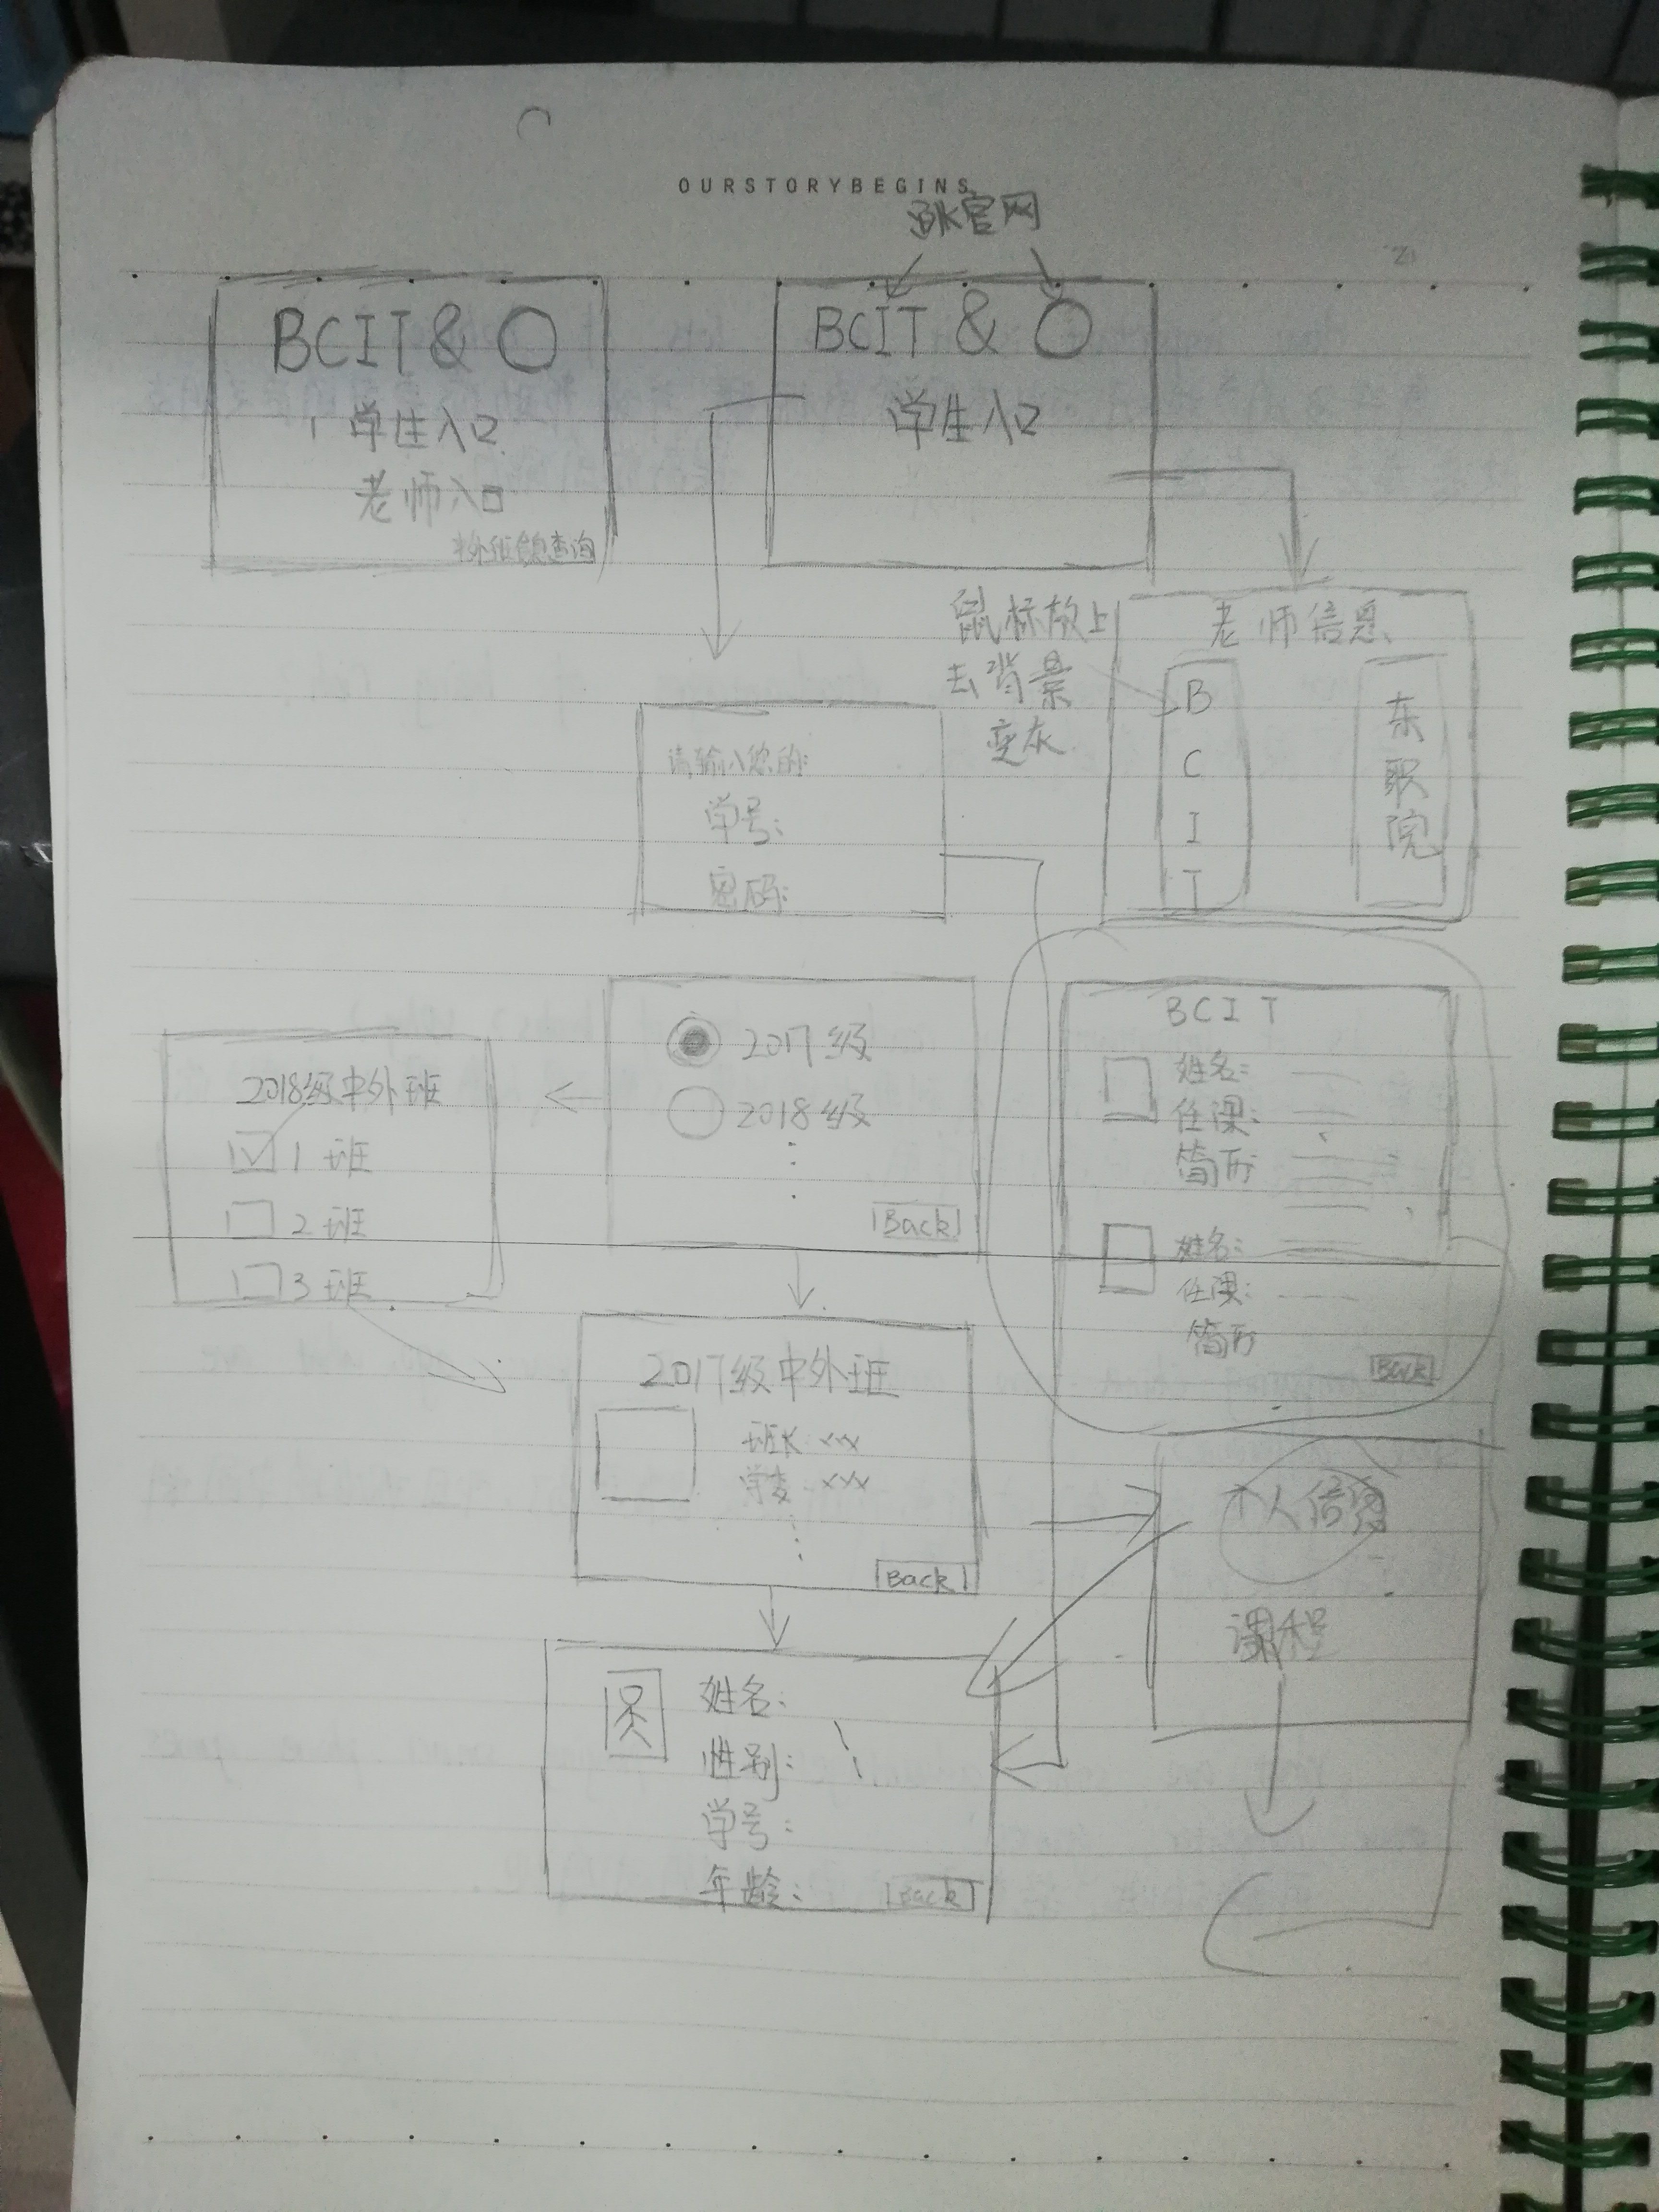 OURSTORYBEGINS
跳官网
BCIT & ○
学生入口
老师入口
中外班信息查询
BCIT & ○
学生入口
鼠标放上
去背景
变灰
老师信息
B
C
I
T
东
职
院
请输入您的:
学号:
密码:
2017级
2018级
Back
2018级中外班
1 班
2 班
3 班
BCIT
姓名:
任课:
简历
姓名:
任课:
简历
Back
2017级中外班
班长 xxx
学委: xxx
Back
个人信息
课程
姓名:
性别:
学号:
年龄:
Back